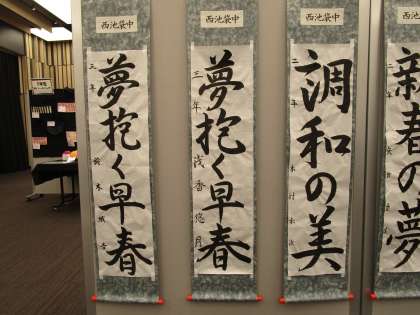 西池袋中
夢抱く早春
三年
西池袋中
夢抱く早春
三年 浅香悠月
西池袋中
調和の美
二年
新春の夢